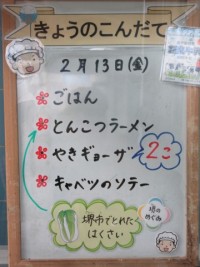 きょうのこんだて
2月13日(金)
ごはん
とんこつラーメン
やきギョーザ 2こ
キャベツのソテー
堺市でとれた
はくさい
堺のめぐみ